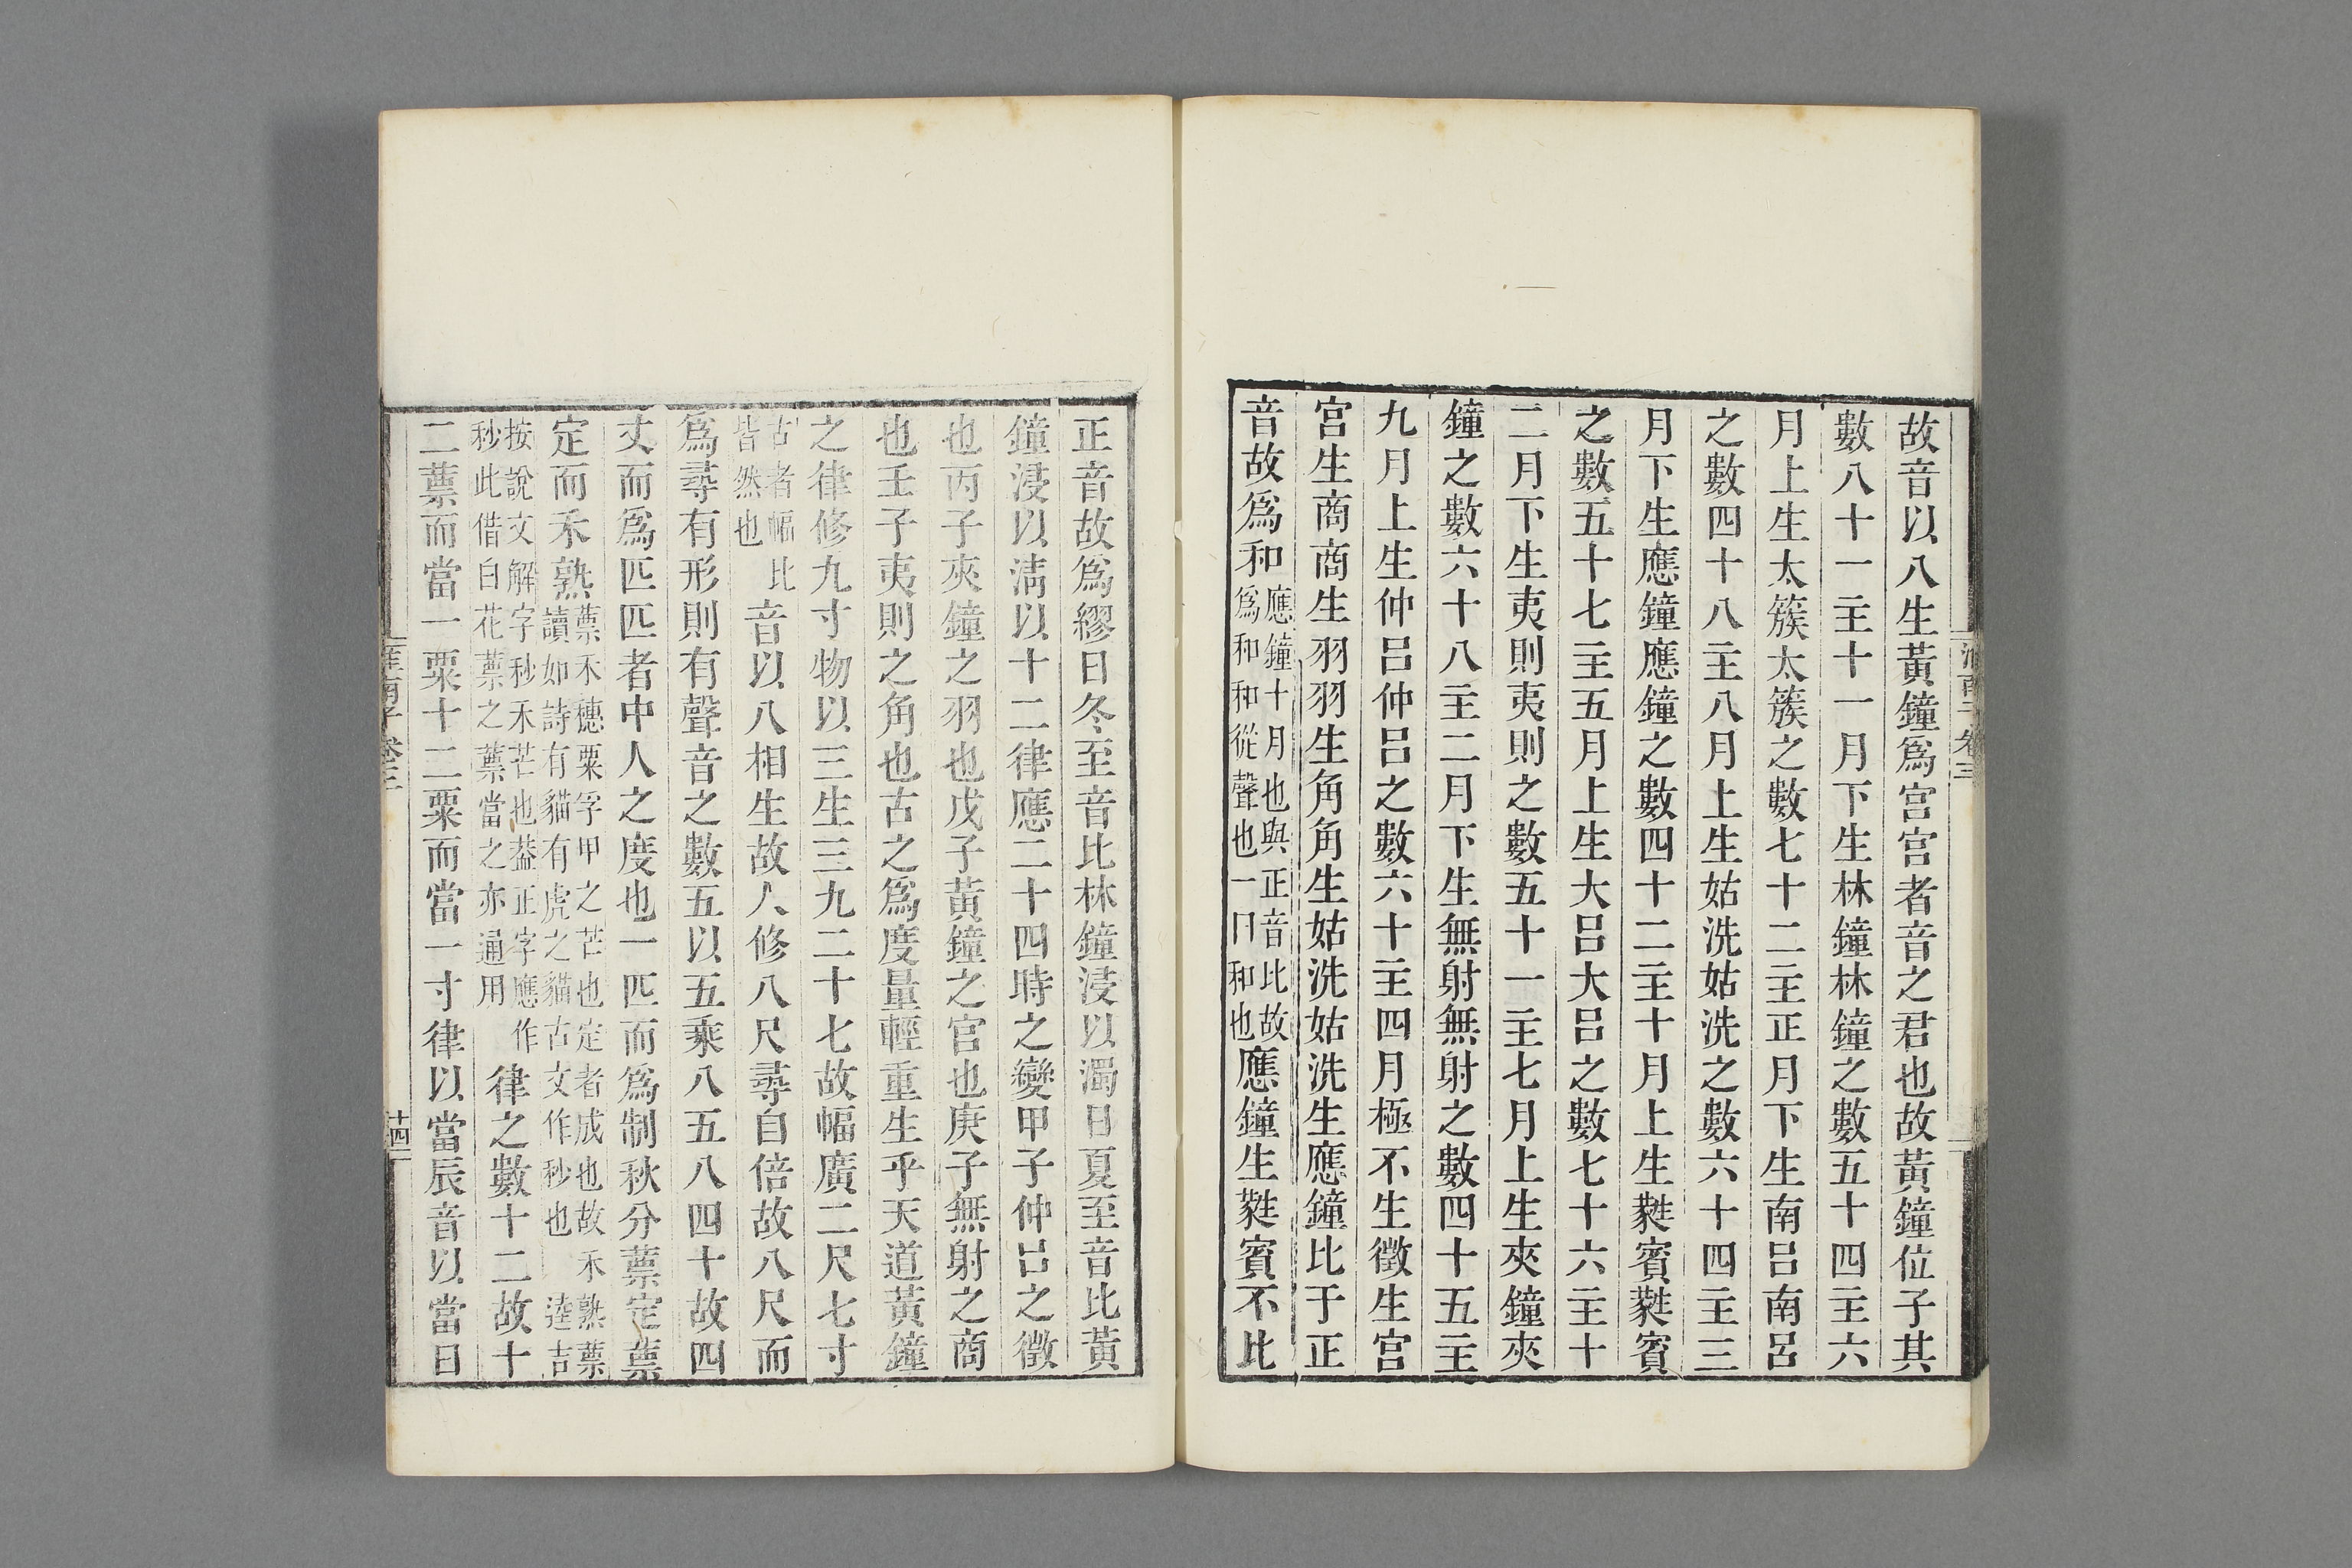 故音以八生黃鐘爲宮宮者音之君也故黃鐘位子其
數八十一主十一月下生林鐘林鐘之數五十四主六
月上生太簇太簇之數七十二主正月下生南呂南呂
之數四十八主八月上生姑洗姑洗之數六十四主三
月下生應鐘應鐘之數四十二主十月上生蕤賓蕤賓
之數五十七主五月上生大呂大呂之數七十六主十
二月下生夷則夷則之數五十一主七月上生夾鐘夾
鐘之數六十八主二月下生無射無射之數四十五主
九月上生仲呂仲呂之數六十主四月極不生徵生宮
宮生商商生羽羽生角角生姑洗姑洗生應鐘比于正
音故爲和應鐘十月也與正音比故爲和和從聲也一曰和也應鐘生蕤賓不比
正音故爲繆日冬至音比林鐘浸以濁日夏至音比黃
鐘浸以清以十二律應二十四時之變甲子仲呂之徵
也丙子夾鐘之羽也戊子黃鐘之宮也庚子無射之商
也壬子夷則之角也古之爲度量輕重生乎天道黃鐘
之律修九寸物以三生三九二十七故幅廣二尺七寸
古者幅比皆然也音以八相生故人修八尺尋自倍故八尺而
爲尋有形則有聲音之數五以五乘八五八四十故四
丈而爲匹匹者中人之度也一匹而爲制秋分蔈定蔈
定而禾熟蔈禾穗粟孚甲之芒也定者成也故禾熟蔈讀如詩有貓有虎之貓古文作秒也 逵吉
按說文解字秒禾芒也葢正字應作秒此借白花蔈之蔈當之亦通用律之數十二故十
二蔈而當一粟十二粟而當一寸律以當辰音以當日
淮南子卷三
十四